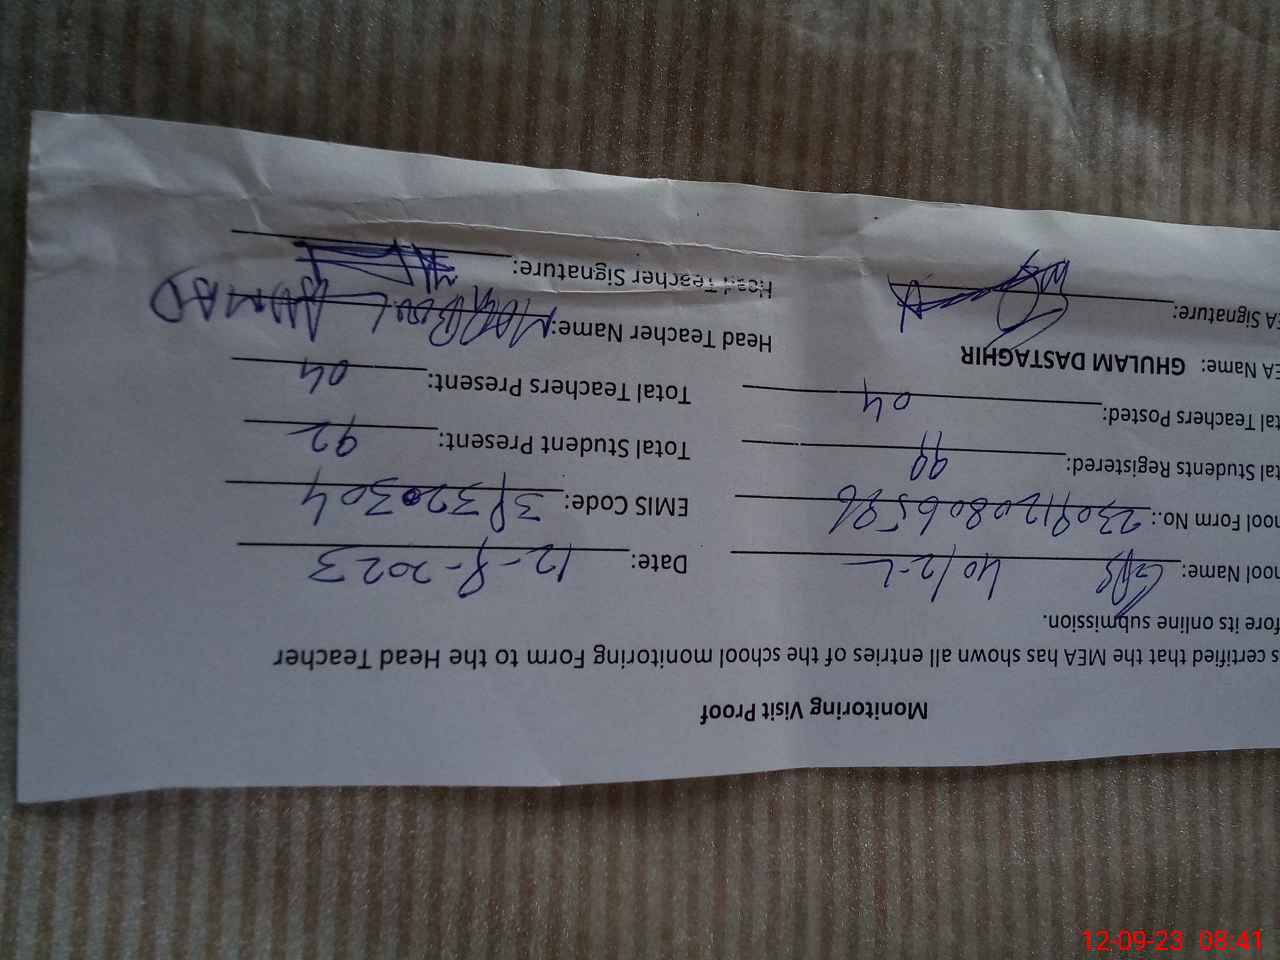 Monitoring Visit Proof
s certified that the MEA has shown all entries of the school monitoring Form to the Head Teacher
fore its online submission.
ool Name: GPS 40/2-L Date: 12-9-2023
ool Form No.: EMIS Code: 39320304
tal Students Registered: 99 Total Student Present: 92
tal Teachers Posted: 04 Total Teachers Present: 04
EA Name: GHULAM DASTAGHIR Head Teacher Name: MAQBOOL AHMAD
EA Signature: Head Teacher Signature:
12-09-23 08:41